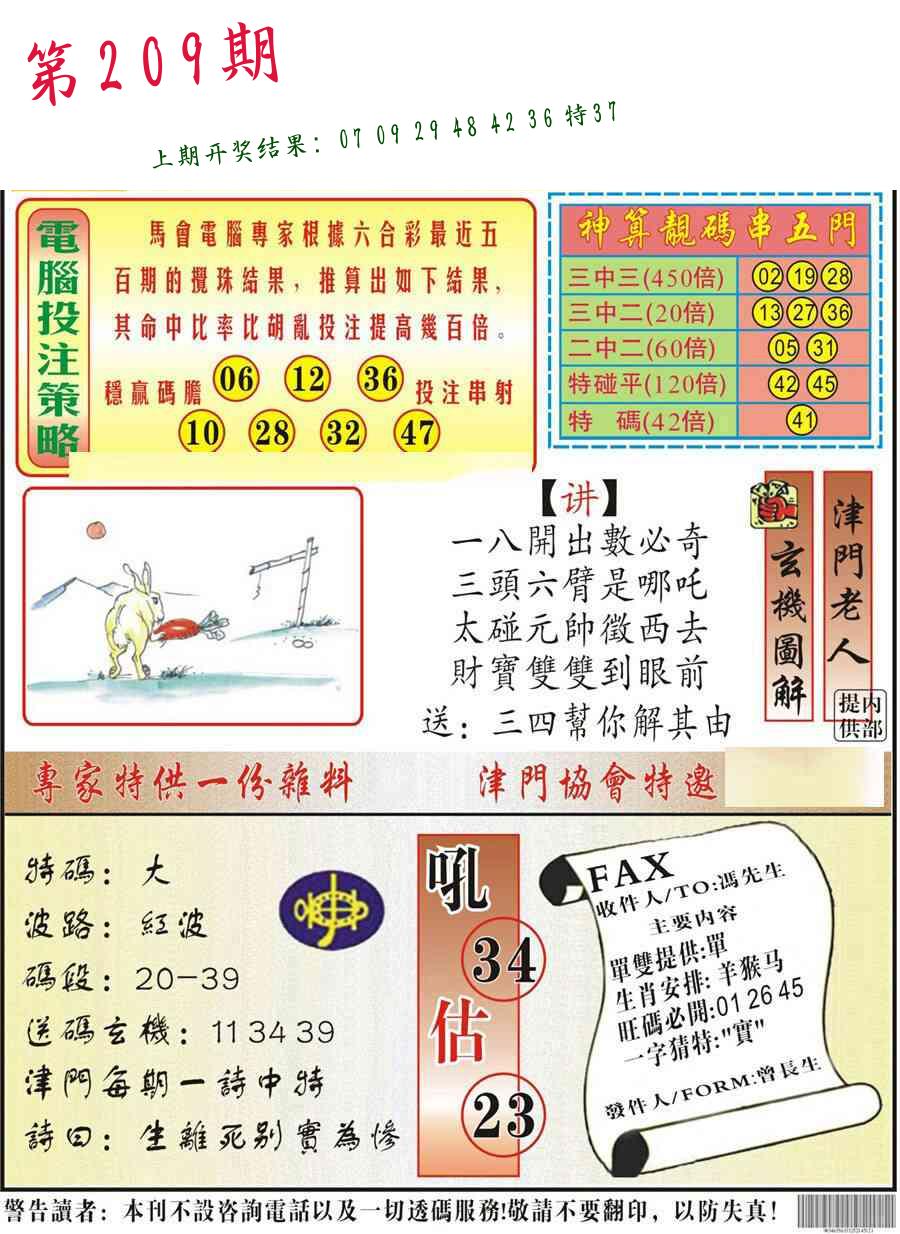 第209期
上期开奖结果：07 09 29 48 42 36 特37
電腦投注策略
馬會電腦專家根據六合彩最近五
百期的攪珠結果，推算出如下結果，
其命中比率比胡亂投注提高幾百倍。
穩贏碼膽 06 12 36 投注串射
10 28 32 47
神算靚碼串五門
三中三(450倍) 02 19 28
三中二(20倍) 13 27 36
二中二(60倍) 05 31
特碰平(120倍) 42 45
特 碼(42倍) 41
【讲】
一八開出數必奇
三頭六臂是哪吒
太碰元帥徵西去
財寶雙雙到眼前
送：三四幫你解其由
玄機圖解
津門老人
内部提供
專家特供一份雜料
津門協會特邀
特碼：大
波路：紅波
碼段：20-39
送碼玄機：11 34 39
津門每期一詩中特
詩曰：生離死别實為慘
吼
34
估
23
FAX
收件人/TO:馮先生
主要内容
單雙提供:單
生肖安排:羊猴马
旺碼必開:01 26 45
一字猜特:"實"
發件人/FORM:曾長生
警告讀者：本刊不設咨詢電話以及一切透碼服務!敬請不要翻印，以防失真！